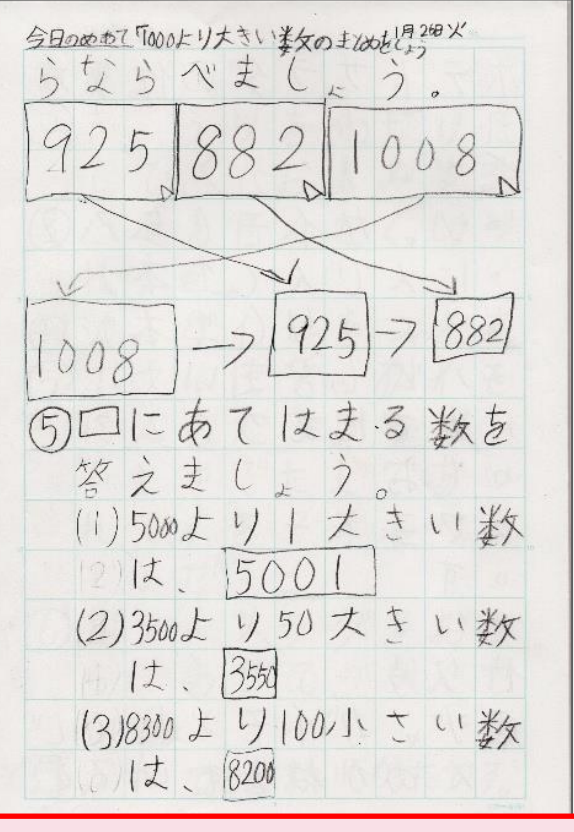 今日のめあて「1000より大きい数のまとめをしよう
1月26日火
らならべましょう。
925 882 1008
1008 → 925 → 882
⑤□にあてはまる数を
答えましょう。
(1)5000より1大きい数
は、5001
(2)3500より50大きい数
は、3550
(3)8300より100小さい数
は、8200